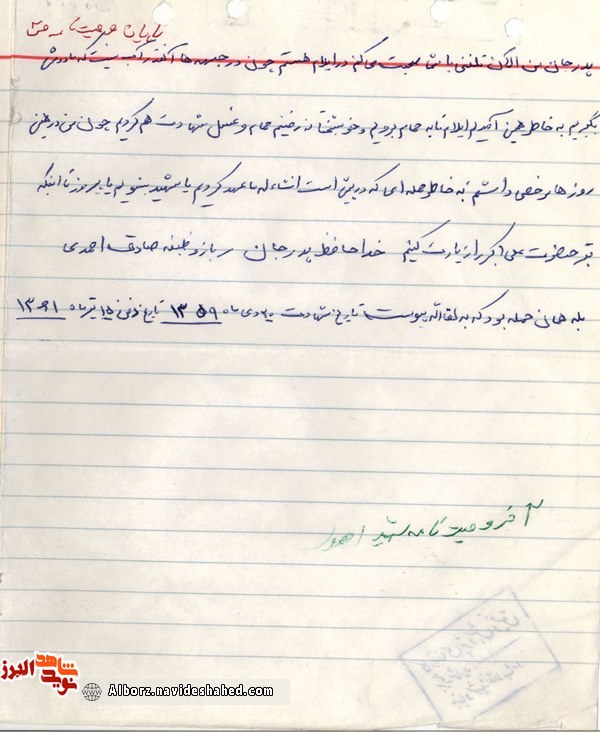 پایان وصیت نامه
پدر جان من الآن تلفنی با شما صحبت می کنم در ایلام هستم چون در جبهه ها آنقدر آب نیست که ما دوش
بگیریم به خاطر همین آمدیم ایلام تا به حمام برویم و خوشبختانه رفتیم حمام و غسل شهادت هم کردیم چون من در همین
روزها مرخصی داشتم به خاطر حمله ای که در پیش است انشاءاله ما عهد کردیم یا شهید بشویم یا پیروز تا اینکه
قبر حضرت علی اکبر را زیارت کنیم خداحافظ پدر جان سرباز وظیفه صادق احمدی
بله همان حمله بود که به لقااله پیوست تاریخ شهادت ۳۰ دی ماه ۱۳۵۹ تاریخ دفن ۱۵ تیر ماه ۱۳۶۱
آخر وصیت نامه شهید
شاهد
نوید
البرز
Alborz.navideshahed.com